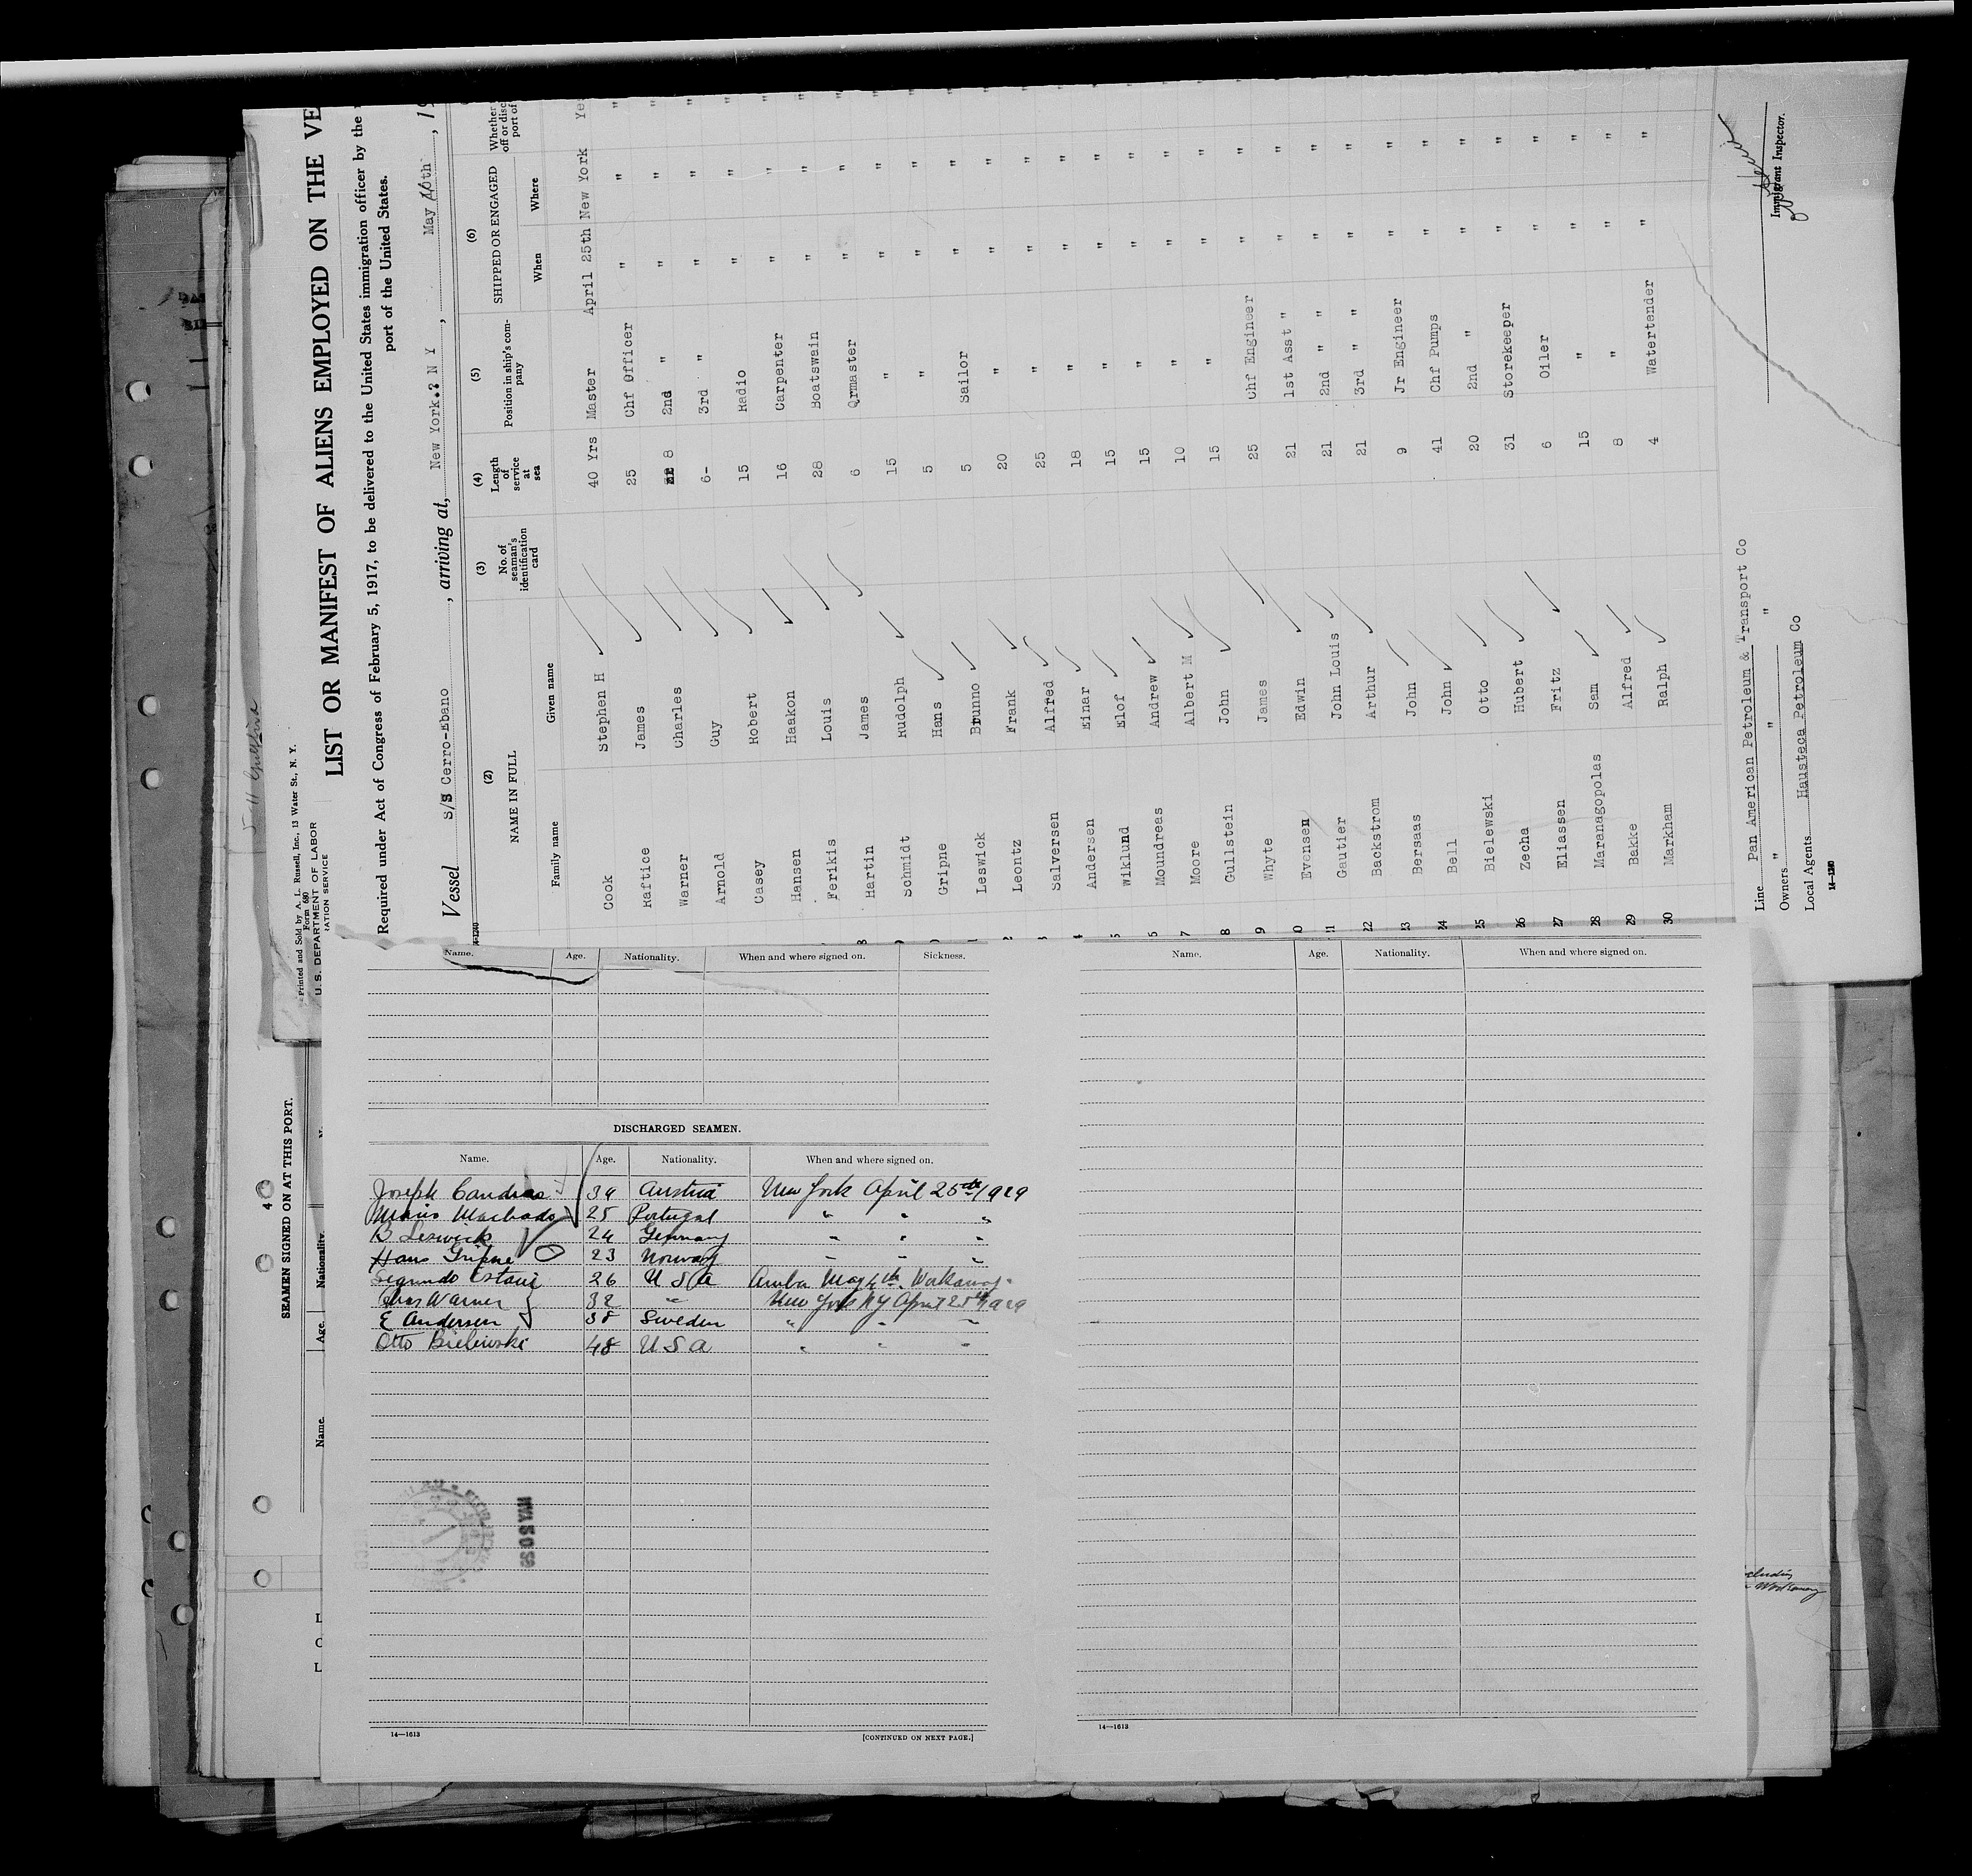 Printed and Sold by A. L. Russell, Inc., 13 Water St., N. Y.
Form 680
U. S. DEPARTMENT OF LABOR
LIST OR MANIFEST OF ALIENS EMPLOYED ON THE VE
Required under Act of Congress of February 5, 1917, to be delivered to the United States immigration officer by the
port of the United States.
Vessel S/S Cerro-Ebano , arriving at, New York.? N Y , May th , 19
(2) (3) (4) (5) (6)
NAME IN FULL No. of seaman's identification card Length of service at sea Position in ship's company SHIPPED OR ENGAGED Whether
Family name Given name When Where
Cook Stephen H 40 Yrs Master April 25th New York Yes
Raftice James 25 Chf Officer " " "
Warner Charles 8 2nd " " " "
Arnold Guy 6- 3rd " " " "
Casey Robert 15 Radio " " "
Hansen Haakon 16 Carpenter " " "
Ferikis Louis 28 Boatswain " " "
8 Hartin James 6 Qrmaster " " "
9 Schmidt Rudolph 15 " " " "
0 Gripne Hans 5 " " " "
1 Leswick Brunno 5 Sailor " " "
2 Leontz Frank 20 " " " "
3 Salversen Alfred 25 " " " "
4 Andersen Einar 18 " " " "
5 Wiklund Elof 15 " " " "
Moundreas Andrew 15 " " " "
7 Moore Albert M 10 " " " "
8 Gullstein John 15 " " " "
9 Whyte James 25 Chf Engineer " " "
0 Evensen Edwin 21 1st Asst " " " "
21 Gautier John Louis 21 2nd " " " " "
22 Backstrom Arthur 21 3rd " " " " "
23 Bersaas John 9 Jr Engineer " " "
24 Bell John 41 Chf Pumps " " "
25 Bielewski Otto 20 2nd " " " "
26 Zecha Hubert 31 Storekeeper " " "
27 Eliassen Fritz 6 Oiler " " "
28 Maranagopolas Sam 15 " " " "
29 Bakke Alfred 8 " " " "
30 Markham Ralph 4 Watertender " " "
Line Pan American Petroleum & Transport Co
Owners " " "
Local Agents Hausteca Petroleum Co
Immigrant Inspector.
Name. Age. Nationality. When and where signed on. Sickness.
Name. Age. Nationality. When and where signed on.
DISCHARGED SEAMEN.
Name. Age. Nationality. When and where signed on.
Joseph 34 Austria New York April 25th 1929
Mario Machado 25 Portugal " " "
B Leswick 24 Germany " " "
Hans Gripne 23 Norway " " "
Segundo 26 U S A Aruba May 4th Workaway
Chas Warner 32 " New York NY April 25th 1929
E Andersen 38 Sweden " " "
Otto Bielewski 48 U S A " " "
14—1613
[CONTINUED ON NEXT PAGE.]
14—1613
4
SEAMEN SIGNED ON AT THIS PORT.
Name. Age. Nationality.
Workaway